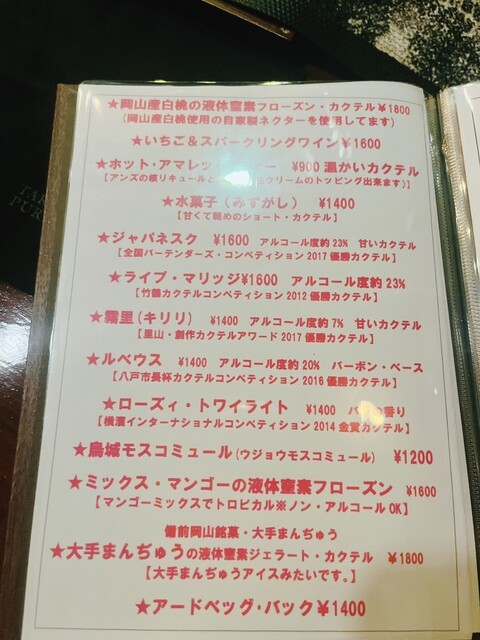 ★岡山産白桃の液体窒素フローズン・カクテル¥1800
(岡山産白桃使用の自家製ネクターを使用してます)
★いちご＆スパークリングワイン¥1600
★ホット・アマレット ¥900 温かいカクテル
【アンズの核リキュールと クリームのトッピング出来ます)】
★水菓子（みずがし） ¥1400
【甘くて軽めのショート・カクテル】
★ジャパネスク ¥1600 アルコール度約23% 甘いカクテル
【全国バーテンダーズ・コンペティション2017優勝カクテル】
★ライプ・マリッジ¥1600 アルコール度約23%
【竹鶴カクテルコンペティション2012優勝カクテル】
★霧里(キリリ) ¥1400 アルコール度約7% 甘いカクテル
【里山・創作カクテルアワード2017優勝カクテル】
★ルベウス ¥1400 アルコール度約20% バーボン・ベース
【八戸市長杯カクテルコンペティション2016優勝カクテル】
★ローズィ・トワイライト ¥1400 の香り
【横濱インターナショナルコンペティション2014金賞カクテル】
★烏城モスコミュール(ウジョウモスコミュール) ¥1200
★ミックス・マンゴーの液体窒素フローズン ¥1600
【マンゴーミックスでトロピカル※ノン・アルコールOK】
備前岡山銘菓・大手まんぢゅう
★大手まんぢゅうの液体窒素ジェラート・カクテル ¥1800
【大手まんぢゅうアイスみたいです。】
★アードベッグ・バック¥1400